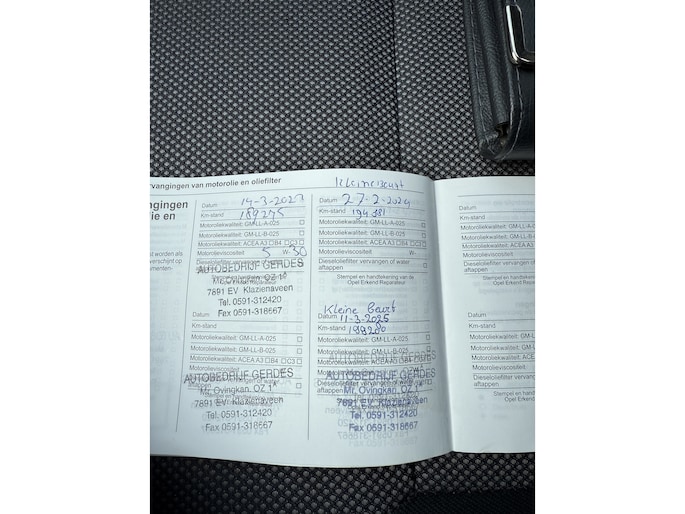 ervangingen van motorolie en oliefilter
ngingen
lie en
st worden als
verschijnt op
Datum 14-3-2023
Km-stand 189275
Motoroliekwaliteit: GM-LL-A-025
Motoroliekwaliteit: GM-LL-B-025
Motoroliekwaliteit: ACEA A3 B4 C3
Motorviscositeit 5 W-30
Dieseloliefilter vervangen of water
AUTOBEDRIJF GERDES
Mr. Ovingkan. OZ 1ª
7891 EV Klazienaveen
Tel. 0591-312420
Fax 0591-318667
Datum
Km-stand
Motoroliekwaliteit: GM-LL-A-025
Motoroliekwaliteit: GM-LL-B-025
Motoroliekwaliteit: ACEA A3 B4 C3
Motorviscositeit
AUTOBEDRIJF GERDES
aftappen
Mr. Ovingkan. OZ 1ª
7891 EV Klazienaveen
Tel. 0591-312420
Fax 0591-318667
Kleine Beurt
Datum 27-2-2024
Km-stand 194381
Motoroliekwaliteit: GM-LL-A-025
Motoroliekwaliteit: GM-LL-B-025
Motoroliekwaliteit: ACEA A3 B4 C3
Motorviscositeit W-
Dieseloliefilter vervangen of water
aftappen
Stempel en handtekening van de
Opel Erkend Reparateur
Kleine Beurt
Datum 11-3-2025
Km-stand 199200
Motoroliekwaliteit: GM-LL-A-025
Motoroliekwaliteit: GM-LL-B-025
Motoroliekwaliteit: ACEA A3 B4 C3
AUTOBEDRIJF GERDES
Dieseloliefilter vervangen of water
aftappen
Mr. Ovingkan. OZ 1ª
7891 EV Klazienaveen
Tel. 0591-312420
Fax 0591-318667
Datum
Km-stand
Motoroliekwaliteit:
Motoroliekwaliteit:
Motoroliekwaliteit:
Motorviscositeit
Dieseloliefilter
aftappen
Stempel en
Opel Erk
Datum
Km-stand
Motoroliekwaliteit:
Motoroliekwaliteit:
Motoroliekwaliteit:
Motorviscositeit
Dieseloliefilter v
aftappen
Stempel en
Opel Erk